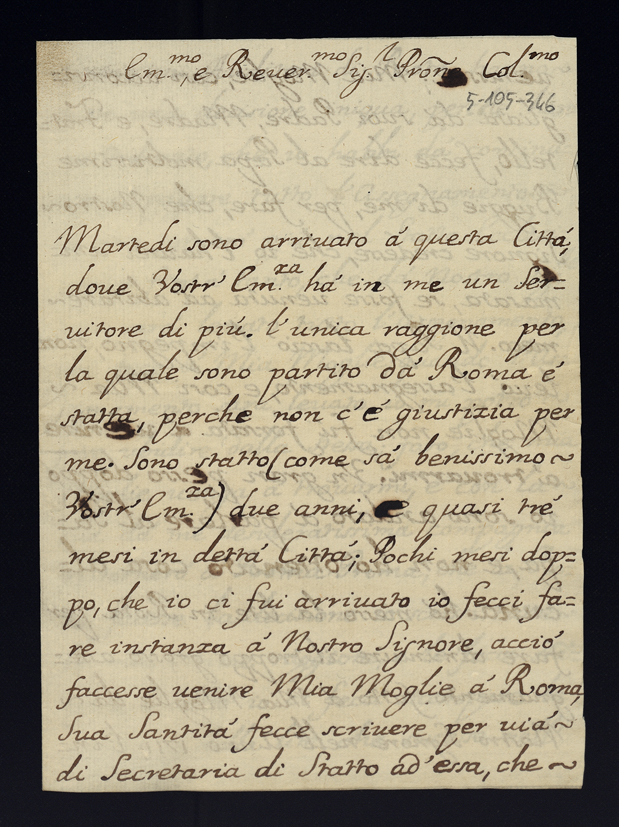 Em.mo, e Reuer.mo Sig.r Prōne Col.mo
5-105-346
Martedi sono arrivato á questa Cittá,
doue Vostr' Em.xa há in me un Ser=
uitore di piú. l'unica raggione per
la quale sono partito dá Roma é
statta, perche non c'é giustizia per
me. Sono statto (come sá benissimo ~
Vostr' Em.xa) due anni, e quasi tré
mesi in dettá Cittá; Pochi mesi dop=
po, che io ci fui arriuato io fecci fa=
re instanza á Nostro Signore, acció
faccesse uenire Mia Moglie á Roma,
Sua Santitá fecce scriuere per uiá ~
di Secretaria di Statto ad'essa, che ~